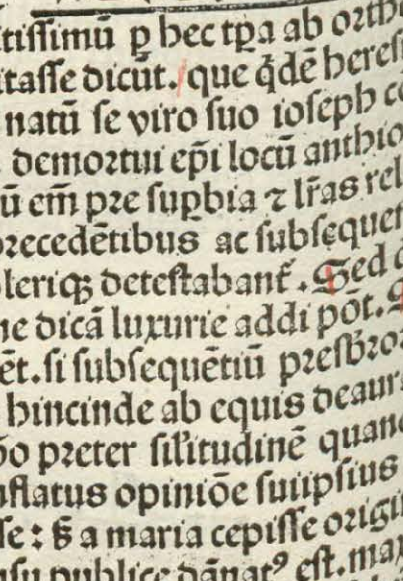 tissimū ꝑ hec tꝑa ab orthꝰ
itasse dicūt. que q̄dē heres
natū se viro suo ioseph c
demortui epī locū anthio
ū em̄ pre suꝑbia ⁊ lr̄as rel
precedētibus ac subsequet
leriqꝫ detestabant᷑. Sed
ne dicā luxurie addi pōt.
ēt. si subsequētiū presbror
hincinde ab equis deaur
preter silitudinē quan
nflatus opiniōe suiipsius
se : sꝫ a maria cepisse origi
publice dānatꝰ est. max